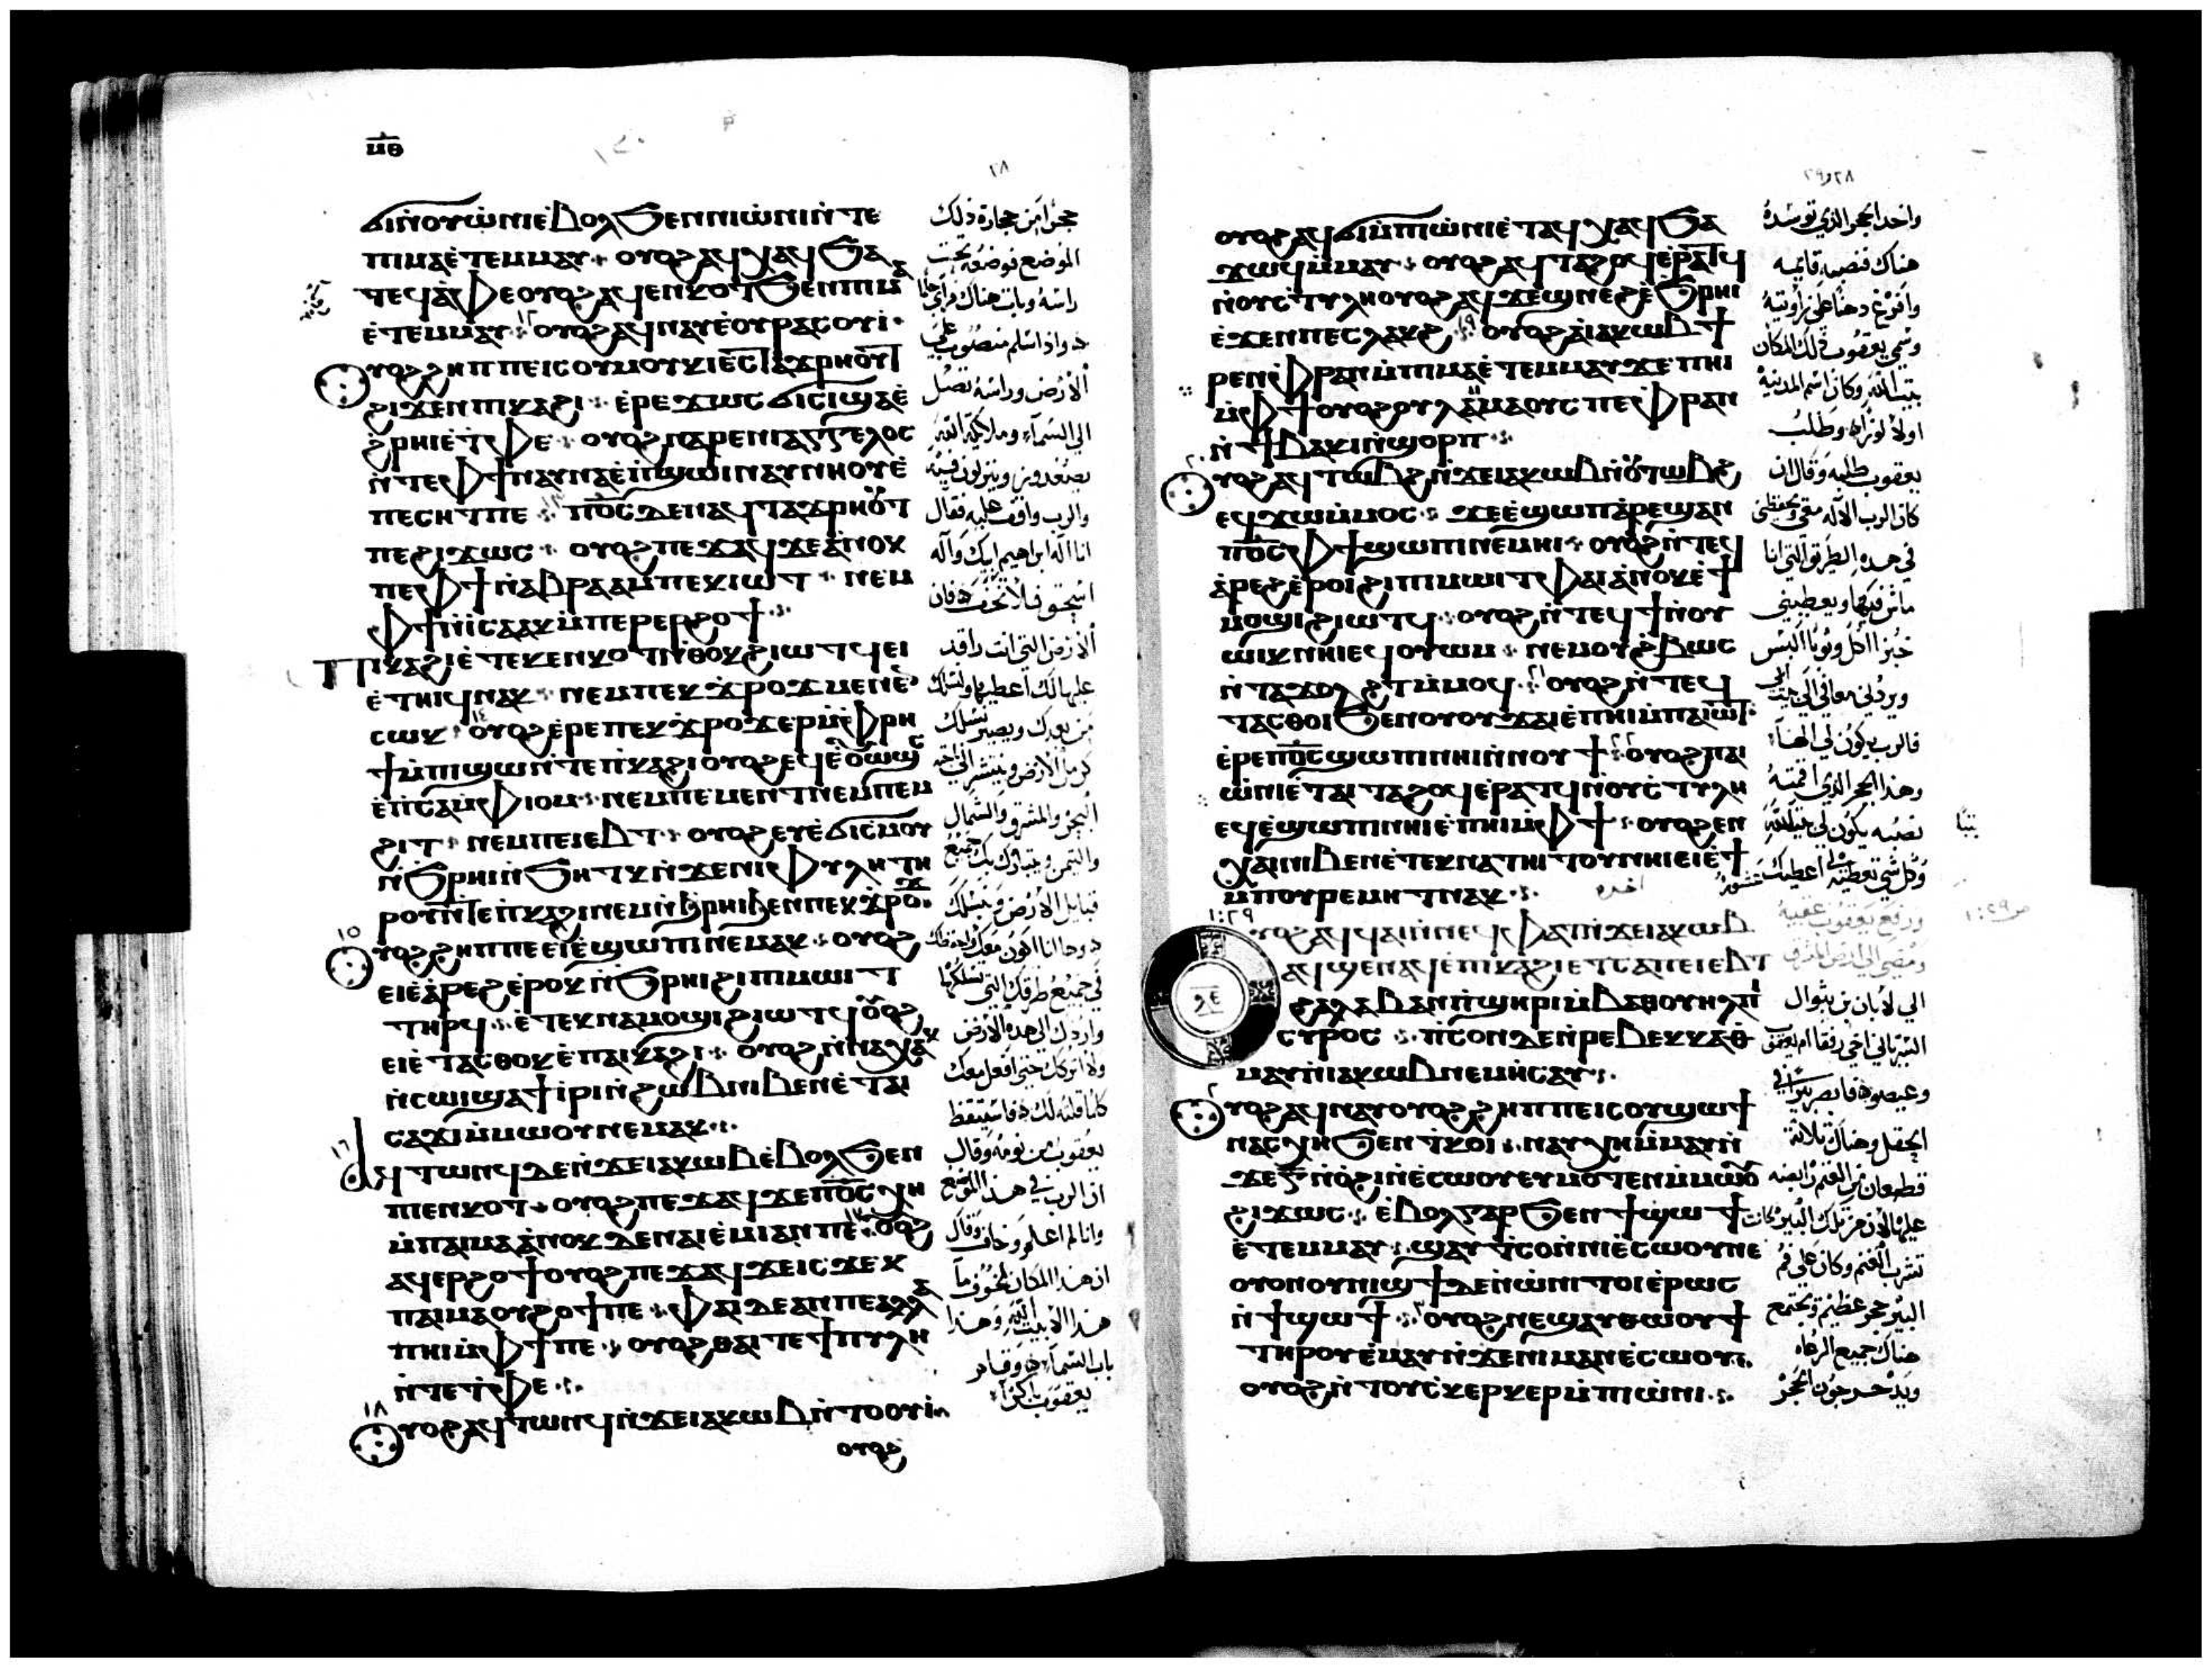 ⲙⲑ
٢٨
ϭⲓⲛⲟⲩⲱⲛⲓ ⲉⲃⲟⲗ ϧⲉⲛ ⲛⲓⲱⲛⲓ ⲛⲧⲉ
ⲡⲓⲙⲁ ⲉⲧⲉⲙⲙⲁⲩ ⲟⲩⲟϩ ⲁϥⲭⲁϥ ϧⲁ
ⲧⲉϥⲁⲫⲉ ⲟⲩⲟϩ ⲁϥⲉⲛⲕⲟⲧ ϧⲉⲛ ⲡⲓⲙⲁ
ⲉⲧⲉⲙⲙⲁⲩ ⲟⲩⲟϩ ⲁϥⲛⲁⲩ ⲉⲟⲩⲣⲁⲥⲟⲩⲓ
ⲟⲩⲟϩ ϩⲏⲡⲡⲉ ⲓⲥ ⲟⲩⲙⲟⲩⲕⲓ ⲉⲥⲧⲁϫⲣⲏⲟⲩⲧ
ϩⲓϫⲉⲛ ⲡⲓⲕⲁϩⲓ ⲉⲣⲉ ϫⲱⲥ ϭⲓⲥⲓ ϣⲁ ⲉ
ϩⲣⲏⲓ ⲉⲧⲫⲉ ⲟⲩⲟϩ ⲛⲁⲣⲉ ⲛⲓⲁⲅⲅⲉⲗⲟⲥ
ⲛⲧⲉ ⲫϯ ⲛⲁⲩⲛⲁ ⲉⲡϣⲱⲓ ⲛⲁⲩⲛⲏⲟⲩ ⲉ
ⲡⲉⲥⲏⲧ ⲡⲉ ⲡϭⲟⲥ ⲇⲉ ⲛⲁϥⲧⲁϫⲣⲏⲟⲩⲧ
ⲡⲉ ϩⲓϫⲱⲥ ⲟⲩⲟϩ ⲡⲉϫⲁϥ ϫⲉ ⲁⲛⲟⲕ
ⲡⲉ ⲫϯ ⲛⲁⲃⲣⲁⲁⲙ ⲡⲉⲕⲓⲱⲧ ⲛⲉⲙ
ⲫϯ ⲛⲓⲥⲁⲁⲕ ⲙⲡⲉⲣⲉⲣϩⲟϯ
ⲡⲓⲕⲁϩⲓ ⲉⲧⲉⲕⲉⲛⲕⲟⲧ ⲛⲑⲟⲕ ϩⲓⲱⲧϥ ⲉⲓ
ⲉⲧⲏⲓϥ ⲛⲁⲕ ⲛⲉⲙ ⲡⲉⲕϫⲣⲟϫ ⲙⲉⲛⲉⲛ
ⲥⲱⲕ ⲟⲩⲟϩ ⲉⲣⲉ ⲡⲉⲕϫⲣⲟϫ ⲉⲣ ⲙⲫⲣⲏ
ϯ ⲙⲡⲓϣⲱ ⲛⲧⲉ ⲡⲕⲁϩⲓ ⲟⲩⲟϩ ⲉϥⲉⲟⲩⲱϣⲥ
ⲉⲡⲥⲁ ⲙⲫⲓⲟⲙ ⲛⲉⲙ ⲡⲉⲙⲉⲛⲧ ⲛⲉⲙ ⲡⲉⲙ
ϩⲓⲧ ⲛⲉⲙ ⲡⲉⲓⲉⲃⲧ ⲟⲩⲟϩ ⲉⲩⲉϭⲓⲥⲙⲟⲩ
ⲛϧⲣⲏⲓ ⲛϧⲏⲧⲕ ⲛϫⲉ ⲛⲓⲫⲩⲗⲏ ⲧⲏ
ⲣⲟⲩ ⲛⲧⲉ ⲡⲕⲁϩⲓ ⲛⲉⲙ ⲛϧⲣⲏⲓ ϧⲉⲛ ⲡⲉⲕϫⲣⲟϫ
١٥ ⲟⲩⲟϩ ϩⲏⲡⲡⲉ ⲉⲓⲉϣⲱⲡⲓ ⲛⲉⲙⲁⲕ ⲟⲩⲟϩ
ⲉⲓⲉⲁⲣⲉϩ ⲉⲣⲟⲕ ⲛϧⲣⲏⲓ ϩⲓ ⲡⲓⲙⲱⲓⲧ
ⲧⲏⲣϥ ⲉⲧⲉⲕⲛⲁⲙⲟϣⲓ ϩⲓⲱⲧϥ ⲟⲩⲟϩ
ⲉⲓⲉⲧⲁⲥⲑⲟⲕ ⲉⲡⲁⲓⲕⲁϩⲓ ⲟⲩⲟϩ ⲛⲛⲁⲭⲁⲕ
ⲛⲥⲱⲓ ϣⲁϯⲓⲣⲓ ⲛϩⲱⲃ ⲛⲓⲃⲉⲛ ⲉⲧⲁⲓ
ⲥⲁϫⲓ ⲙⲙⲱⲟⲩ ⲛⲉⲙⲁⲕ
١٦ ⲁϥⲧⲱⲛϥ ⲇⲉ ⲛϫⲉ ⲓⲁⲕⲱⲃ ⲉⲃⲟⲗ ϧⲉⲛ
ⲡⲓⲉⲛⲕⲟⲧ ⲟⲩⲟϩ ⲡⲉϫⲁϥ ϫⲉ ⲡϭⲟⲥ ⲭⲏ
ⲙⲡⲁⲓⲙⲁ ⲁⲛⲟⲕ ⲇⲉ ⲛⲁⲓⲉⲙⲓ ⲁⲛ ⲡⲉ ⲟⲩⲟϩ
ⲁϥⲉⲣϩⲟϯ ⲟⲩⲟϩ ⲡⲉϫⲁϥ ϫⲉ ⲓⲥϫⲉⲕ
ⲡⲁⲓⲙⲁ ⲟⲩϩⲟϯ ⲡⲉ ⲫⲁⲓ ⲇⲉ ⲁⲛ ⲡⲉ ⲁⲗⲗⲁ
ⲡⲏⲓ ⲙⲫϯ ⲡⲉ ⲟⲩⲟϩ ⲑⲁⲓ ⲧⲉ ϯⲡⲩⲗⲏ
ⲛⲧⲉ ⲧⲫⲉ
١٨ ⲟⲩⲟϩ ⲁϥⲧⲱⲛϥ ⲛϫⲉ ⲓⲁⲕⲱⲃ ⲛⲧⲟⲟⲩⲓ
ⲟⲩⲟϩ
حجرا من حجارة ذلك
الموضع فوضعه تحت
راسه وبات هناك فراى حلما
واذا سلم منصوب على
الارض وراسه تصل
الى السماء وملايكة الله
يصعدون وينزلون فيه
والرب واقف عليه فقال
انا اله ابراهيم ابيك واله
اسحق فلا تخف فان
الارض التي انت راقد
عليها لك اعطيها ولنسلك
من بعدك ويصير نسلك
كرمل الارض وينتشر الى
البحر والمشرق والشمال
والتيمن ويتبارك بك جميع
قبايل الارض وبنسلك
وها انا اكون معك واحفظك
في جميع طرقك التي تسلكها
واردك الى هذه الارض
ولا اتركك حتى افعل معك
كلما قلته لك فاستيقظ
يعقوب من نومه وقال
ان الرب في هذا الموضع
وانا لم اعلم وخاف وقال
ان هذا المكان مخوف ما
هذا الا بيت الله وهذا
باب السماء وقام
يعقوب باكرا
٢٨ و٢٩
ⲟⲩⲟϩ ⲁϥϭⲓ ⲙⲡⲱⲛⲓ ⲉⲧⲁϥⲭⲁϥ ϧⲁ
ϫⲱϥ ⲙⲙⲁⲩ ⲟⲩⲟϩ ⲁϥⲧⲁϩⲟϥ ⲉⲣⲁⲧϥ
ⲛⲟⲩⲥⲧⲩⲗⲏ ⲟⲩⲟϩ ⲁϥϫⲉϣ ⲛⲉϩ ⲉϧⲣⲏⲓ
ⲉϫⲉⲛ ⲡⲉⲥⲗⲁⲕϩ ١٩ ⲟⲩⲟϩ ⲁⲓⲁⲕⲱⲃ ϯ
ⲣⲉⲛ ⲫⲣⲁⲛ ⲙⲡⲓⲙⲁ ⲉⲧⲉⲙⲙⲁⲩ ϫⲉ ⲡⲏⲓ
ⲙⲫϯ ⲟⲩⲟϩ ⲟⲩⲗⲁⲙⲙⲁⲟⲩⲥ ⲡⲉ ⲫⲣⲁⲛ
ⲛϯⲃⲁⲕⲓ ⲛϣⲟⲣⲡ
٢٠ ⲟⲩⲟϩ ⲁϥⲧⲱⲃϩ ⲛϫⲉ ⲓⲁⲕⲱⲃ ⲛⲟⲩⲧⲱⲃϩ
ⲉϥϫⲱ ⲙⲙⲟⲥ ϫⲉ ⲉϣⲱⲡ ⲁⲣⲉϣⲁⲛ
ⲡϭⲟⲥ ⲫϯ ϣⲱⲡⲓ ⲛⲉⲙⲏⲓ ⲟⲩⲟϩ ⲛⲧⲉϥ
ⲁⲣⲉϩ ⲉⲣⲟⲓ ϩⲓ ⲡⲓⲙⲱⲓⲧ ⲫⲁⲓ ⲁⲛⲟⲕ ⲉϯ
ⲙⲟϣⲓ ϩⲓⲱⲧϥ ⲟⲩⲟϩ ⲛⲧⲉϥϯ ⲛⲟⲩ
ⲱⲓⲕ ⲛⲏⲓ ⲉϥⲟⲩⲱⲙ ⲛⲉⲙ ⲟⲩϩⲃⲱⲥ
ⲛⲧⲁϫⲟⲗϩⲧ ⲙⲙⲟϥ ٢١ ⲟⲩⲟϩ ⲛⲧⲉϥ
ⲧⲁⲥⲑⲟⲓ ϧⲉⲛ ⲟⲩⲟⲩϫⲁⲓ ⲉⲡⲏⲓ ⲙⲡⲁⲓⲱⲧ
ⲉⲣⲉ ⲡϭⲟⲥ ϣⲱⲡⲓ ⲛⲏⲓ ⲛⲛⲟⲩϯ ٢٢ ⲟⲩⲟϩ ⲡⲁⲓ
ⲱⲛⲓ ⲉⲧⲁⲓⲧⲁϩⲟϥ ⲉⲣⲁⲧϥ ⲛⲟⲩⲥⲧⲩⲗⲏ
ⲉϥⲉϣⲱⲡⲓ ⲛⲏⲓ ⲉⲡⲏⲓ ⲙⲫϯ ⲟⲩⲟϩ ⲉⲛ
ⲭⲁⲓ ⲛⲓⲃⲉⲛ ⲉⲧⲉⲕⲛⲁⲧⲏⲓⲧⲟⲩ ⲛⲏⲓ ⲉⲓⲉϯ
ⲙⲡⲟⲩⲣⲉⲙⲏⲧ ⲛⲁⲕ اخره
٢٩:١
ⲟⲩⲟϩ ⲁϥϥⲁⲓ ⲛⲛⲉϥⲫⲁⲧ ⲛϫⲉ ⲓⲁⲕⲱⲃ
ⲁϥϣⲉⲛⲁϥ ⲉⲡⲕⲁϩⲓ ⲉⲧⲥⲁ ⲡⲉⲓⲉⲃⲧ
ϩⲁ ⲗⲁⲃⲁⲛ ⲡϣⲏⲣⲓ ⲙⲃⲁⲑⲟⲩⲏⲗ ⲡⲓ
ⲥⲩⲣⲟⲥ ⲡⲥⲟⲛ ⲇⲉ ⲛⲣⲉⲃⲉⲕⲕⲁ ⲑ
ⲙⲁⲩ ⲛⲓⲁⲕⲱⲃ ⲛⲉⲙ ⲏⲥⲁⲩ
٢ ⲟⲩⲟϩ ⲁϥⲛⲁⲩ ⲟⲩⲟϩ ϩⲏⲡⲡⲉ ⲓⲥ ⲟⲩϣⲱϯ
ⲛⲁⲥⲭⲏ ϧⲉⲛ ⲧⲕⲟⲓ ⲛⲁⲩⲭⲏ ⲙⲙⲁⲩ ⲛ
ϫⲉ ⲅ ⲛⲟϩⲓ ⲛⲉⲥⲱⲟⲩ ⲉⲩⲙⲟⲧⲉⲛ ⲙⲙⲱⲟⲩ
ϩⲓϫⲱⲥ ⲉⲃⲟⲗ ⲅⲁⲣ ϧⲉⲛ ϯϣⲱϯ
ⲉⲧⲉⲙⲙⲁⲩ ϣⲁⲩⲧⲥⲟ ⲛⲛⲓⲉⲥⲱⲟⲩ ⲛⲉ
ⲟⲩⲟⲛ ⲟⲩⲛⲓϣϯ ⲇⲉ ⲛⲱⲛⲓ ⲧⲟⲓ ⲉⲣⲱⲥ
ⲛϯϣⲱϯ ٣ ⲟⲩⲟϩ ⲛⲉϣⲁⲩⲑⲱⲟⲩϯ
ⲧⲏⲣⲟⲩ ⲉⲙⲁⲩ ⲛϫⲉ ⲛⲓⲙⲁⲛⲉⲥⲱⲟⲩ
ⲟⲩⲟϩ ⲛⲧⲟⲩⲥⲕⲉⲣⲕⲉⲣ ⲙⲡⲱⲛⲓ
واخد الحجر الذي توسده
هناك فنصبه قايمه
وافرغ دهنا على زاويته
وسمى يعقوب ذلك المكان
بيت الله وكان اسم المدنية
اولا لوزا وطلب
يعقوب طلبه وقال ان
كان الرب الاله معي ويحفظني
في هذه الطريق التي انا
ماشي فيها ويعطيني
خبزا اكل وثوبا البس
ويردني معافى الى بيت ابي
فالرب يكون لي الها
وهذا الحجر الذي اقمته
نصبه يكون لي بيت الله
وكل شي تعطيه لي اعطيك عشوره
ورفع يعقوب عقبيه
ومضى الى ارض المشرق
الى لابان بن بثوال
السرياني اخي رفقا ام يعقوب
وعيصو فابصر بيرا في
الحقل وهناك ثلاثة
قطعان من الغنم رابضه
عليها لان من تلك البير كانت
تشرب الغنم وكان على فم
البير حجر عظيم ويجتمع
هناك جميع الرعاه
ويدحرجون الحجر
ص ٢٩:١